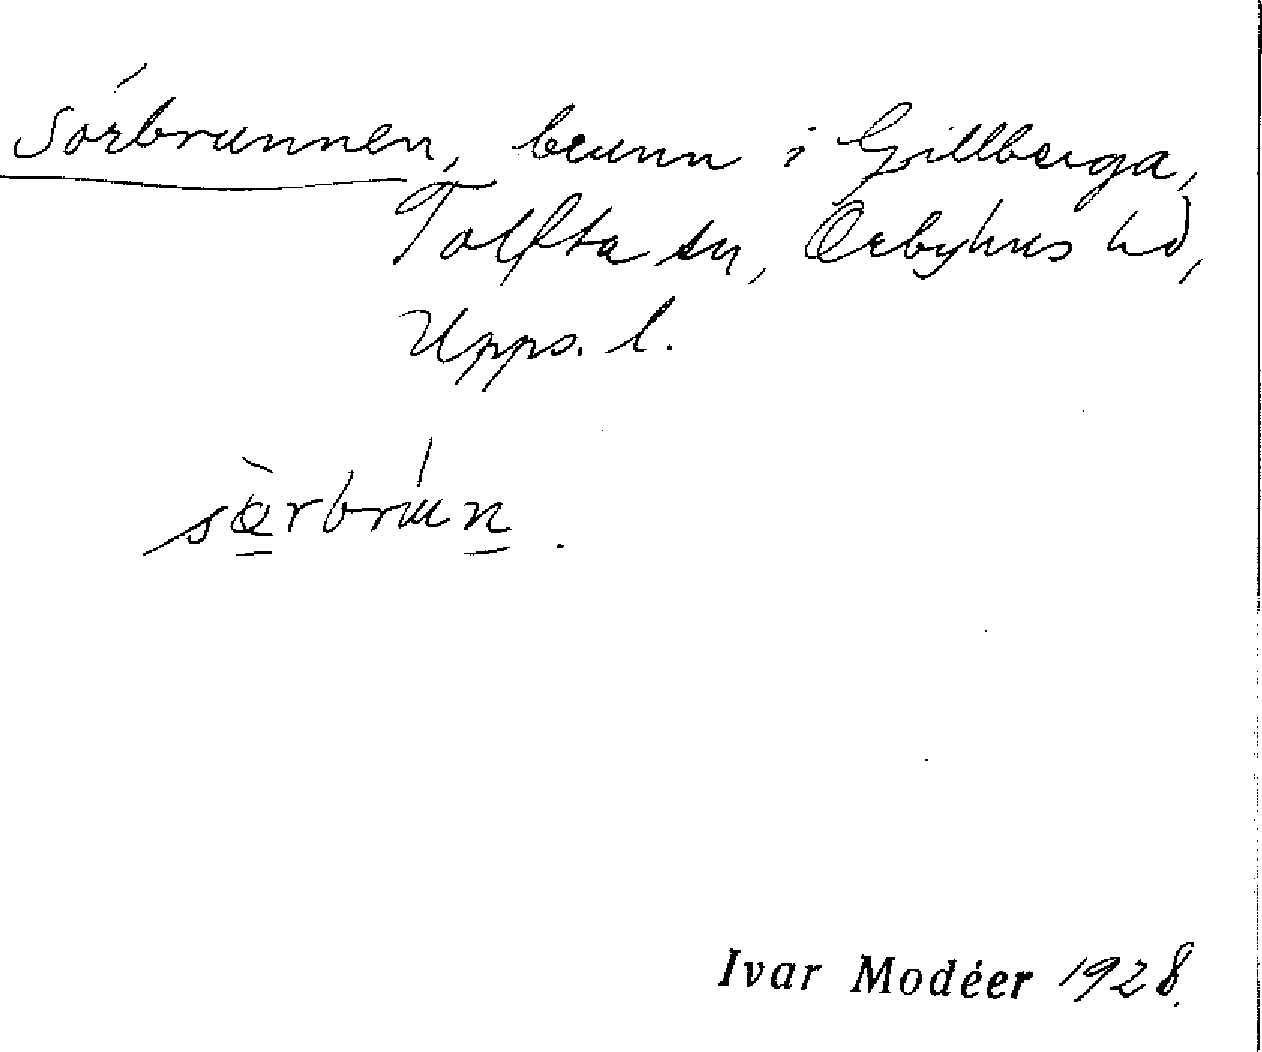 Sörbrunnen, brunn i Gillberga,
Tolfta sn, Örbyhus hd,
Upps. l.
sœ̀rbrun.
Ivar Modéer 1928.